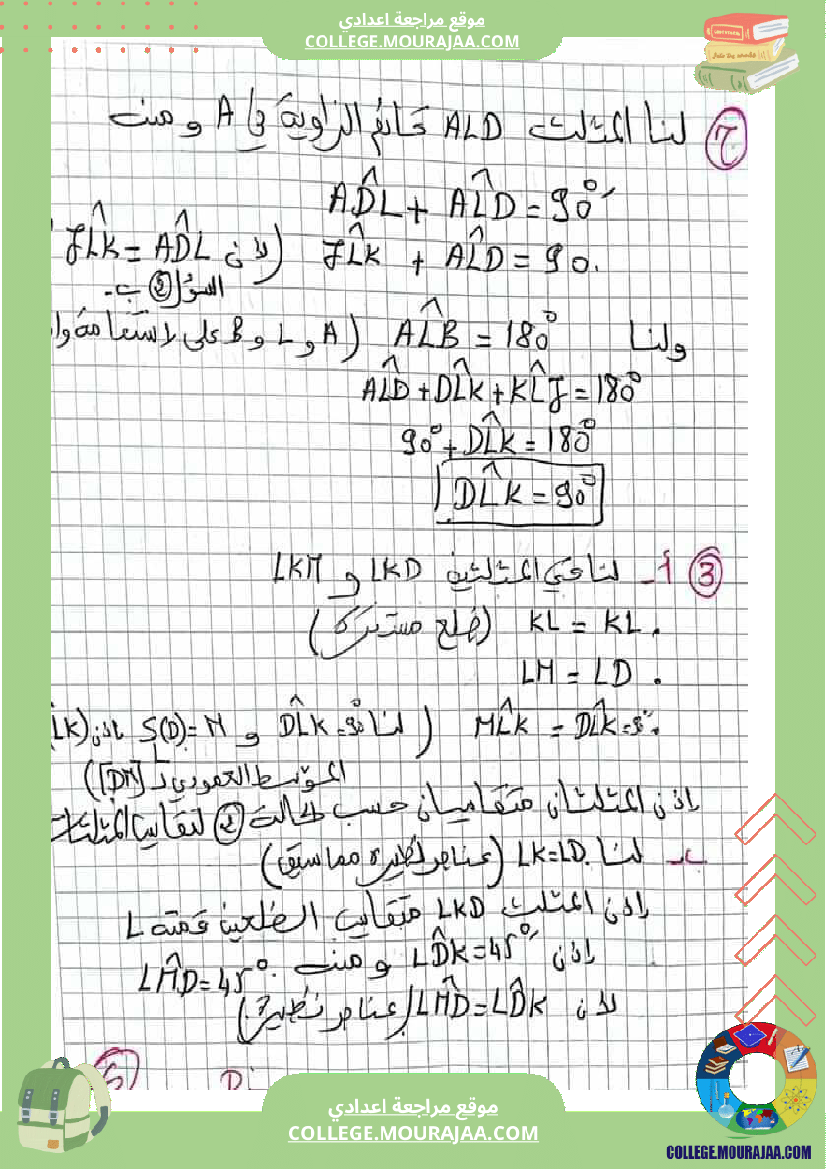 موقع مراجعة اعدادي
COLLEGE.MOURAJAA.COM
ج) لنا المثلث ALD قائم الزاوية في A و منه
AD̂L + AL̂D = 90°
JL̂K + AL̂D = 90. (لأن JL̂K = AD̂L
السؤال ② ب-
ولنا AL̂B = 180° (A و L و B على استقامة
AL̂D + DL̂K + KL̂J = 180°
90° + DL̂K = 180°
DL̂K = 90°
③ أ- لنا في المثلثين LKD و LKM
. KL = KL (ضلع مشترك)
. LM = LD
. ML̂K = DL̂K = 90° (لنا DL̂K = 90° و S(D) = M إذن (LK)
المؤسط العمودي لـ [DM])
إذن المثلثان متقايسان حسب الحالة ② لتقايس المثلثات
ب- لنا LK=LD. (عناصر نظيرة مما سبق)
إذن المثلث LKD متقايس الضلعين قمته L
إذن LD̂K = 45° و منه LM̂D = 45°.
لأن LM̂D = LD̂K (عناصر نظيرة)
موقع مراجعة اعدادي
COLLEGE.MOURAJAA.COM
COLLEGE.MOURAJAA.COM